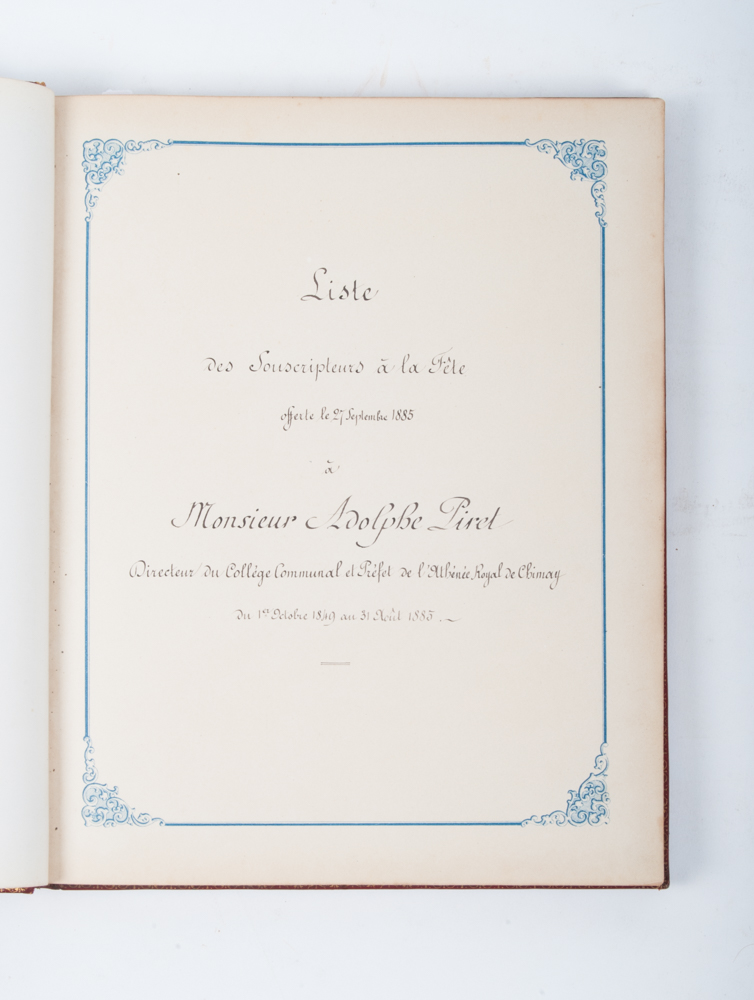 Liste
des Souscripteurs à la Fête
offerte le 27 Septembre 1885
à
Monsieur Adolphe Piret
Directeur du Collége Communal et Préfet de l'Athénée Royal de Chimay
du 1er Octobre 1849 au 31 Août 1885.